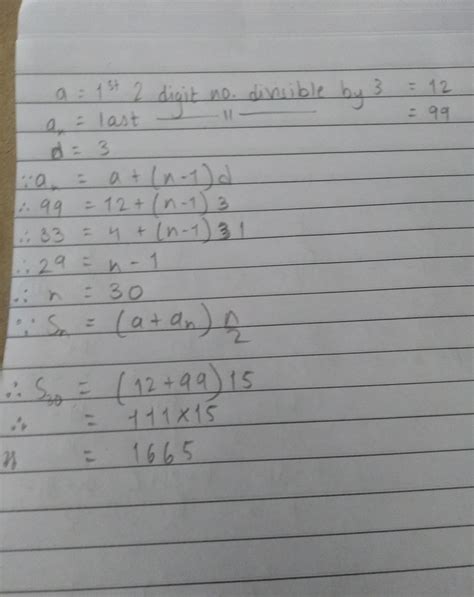 a = 1st 2 digit no. divisible by 3 = 12
an = last —— 〃 —— = 99
d = 3
∵ an = a + (n-1)d
∴ 99 = 12 + (n-1) 3
∴ 33 = 4 + (n-1) 1
∴ 29 = n - 1
∴ n = 30
∵ Sn = (a + an) n/2
∴ S30 = (12 + 99) 15
∴ = 111 × 15
= 1665